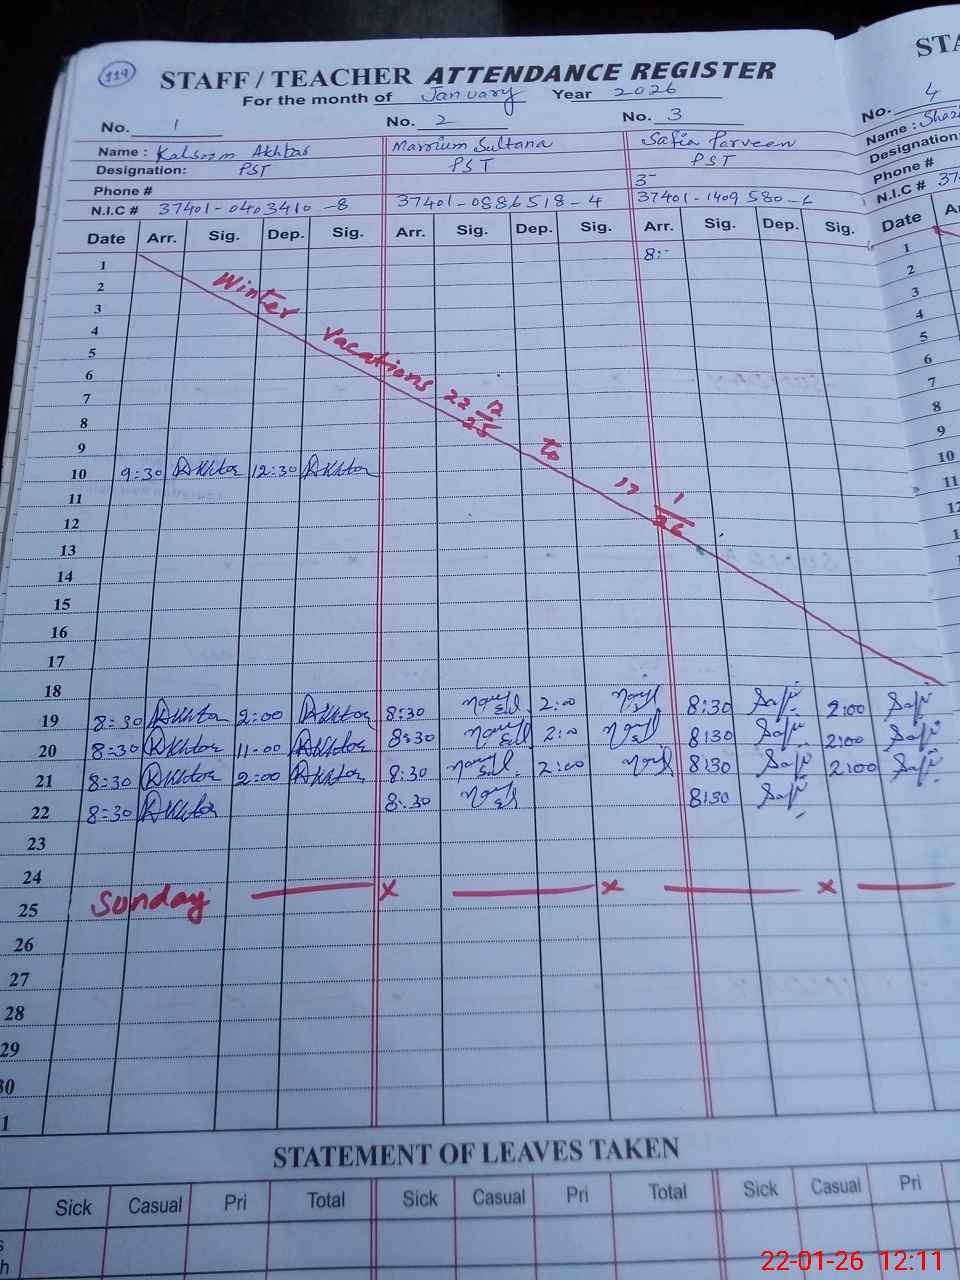 119
STAFF / TEACHER ATTENDANCE REGISTER
For the month of January Year 2026
No. 1 No. 2 No. 3
Name : Kalsoom Akhtar Marrium Sultana Safia Parveen
Designation: PST PST PST
Phone # 3-
N.I.C # 37401-0403410-8 37401-0886518-4 37401-1409580-6
Date Arr. Sig. Dep. Sig. Arr. Sig. Dep. Sig. Arr. Sig. Dep. Sig.
1 8:-
2
3
4
5
6
7
8
9
10 9:30 Akhtar 12:30 Akhtar
11
12
13
14
15
16
17
18
Winter vacations 22 12/25 to 17 1/26
19 8:30 Akhtar 2:00 Akhtar 8:30 2:00 8:30 Safi 2:00 Safi
20 8:30 Akhtar 11:00 Akhtar 8:30 2:00 8:30 Safi 2:00 Safi
21 8:30 Akhtar 2:00 Akhtar 8:30 2:00 8:30 Safi 2:00 Safi
22 8:30 Akhtar 8:30 8:30 Safi
23
24
25 Sunday — x — x — x —
26
27
28
29
30
1
STATEMENT OF LEAVES TAKEN
Sick Casual Pri Total Sick Casual Pri Total Sick Casual Pri
STA
No. 4
Name : Shaz
Designation:
Phone #
N.I.C # 37
Date A
1
2
3
4
5
6
7
8
9
10
11
12
22-01-26 12:11